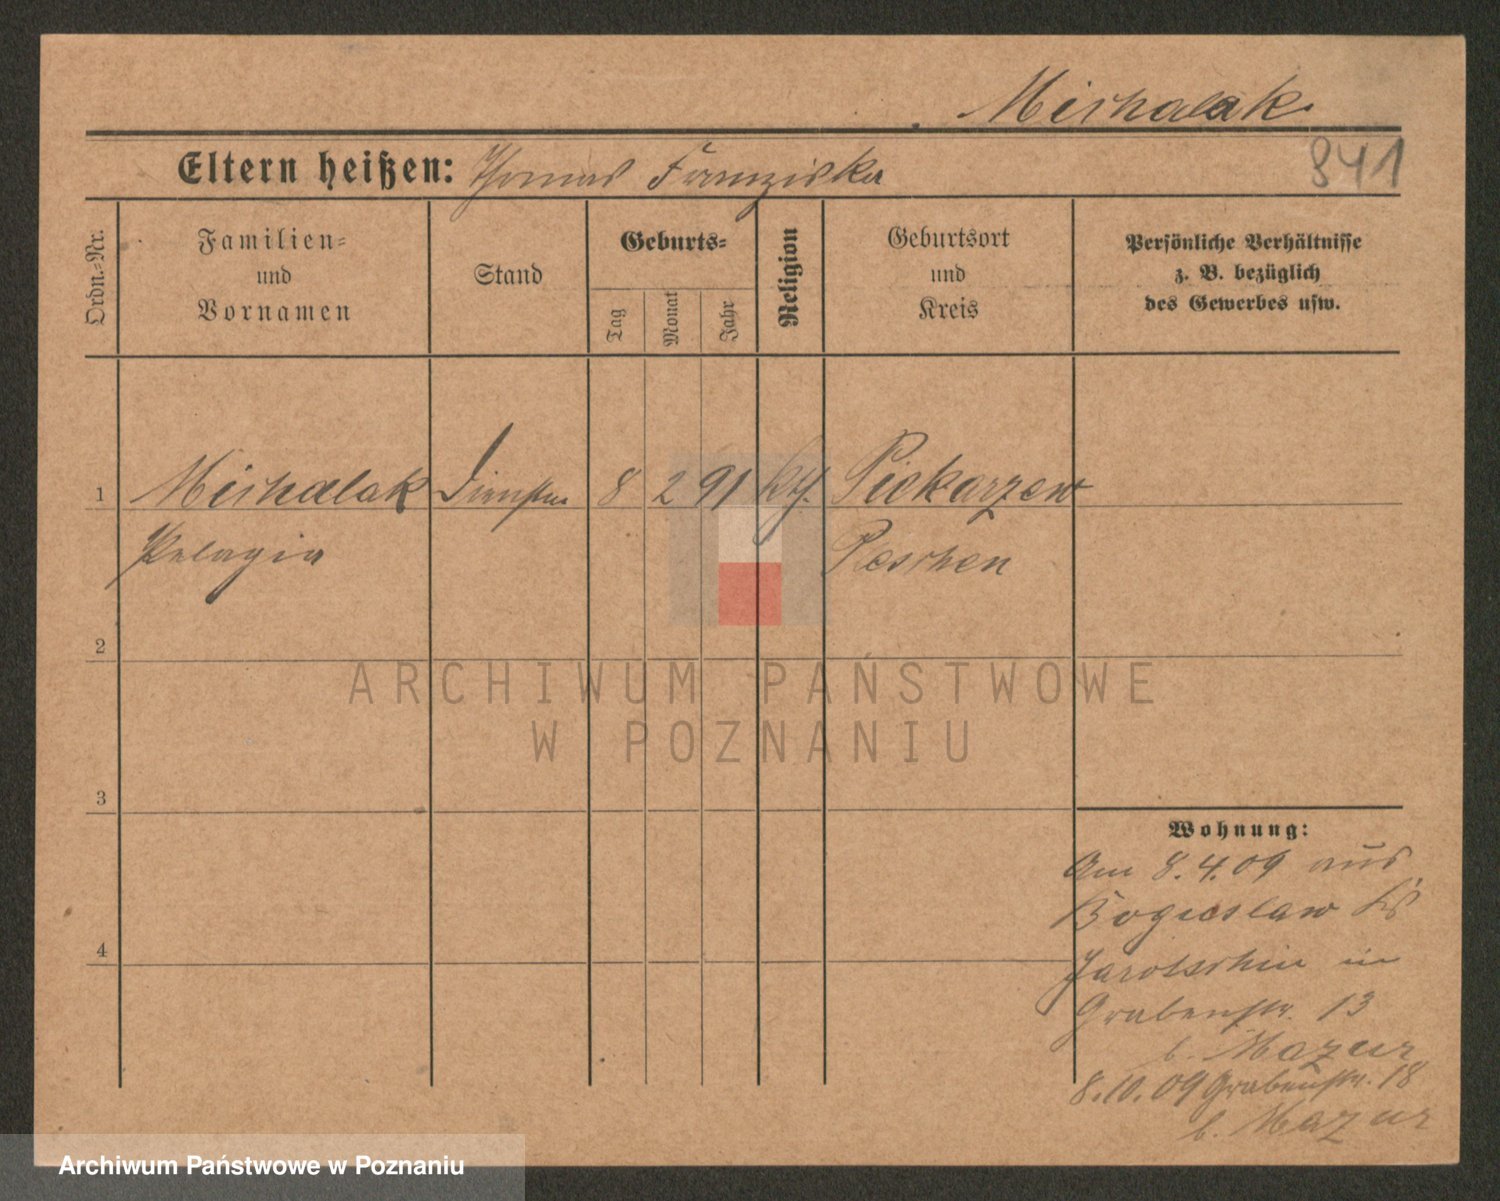 Michalak
841
Eltern heißen: Thomas Franziska
Ordn.-Nr.
Familien-
und
Vornamen
Stand
Geburts-
Tag
Monat
Jahr
Religion
Geburtsort
und
Kreis
Persönliche Verhältnisse
z. B. bezüglich
des Gewerbes usw.
1 Michalak 8 2 91 kth. Piekarzew
Pelagia Pleschen
2
3
4
Wohnung:
Am 8.4.09 aus
Boguslaw Krs
Jarotschin in
Grabenstr. 13
b. Mazur
8.10.09 Grabenstr. 18
b. Mazur
ARCHIWUM PAŃSTWOWE
W POZNANIU
Archiwum Państwowe w Poznaniu